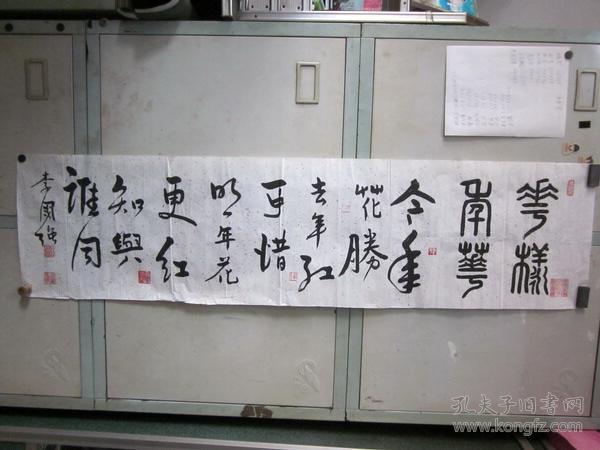 花樣
年華
今年
花勝
去年红
可惜
明年花
更红
知與
誰同
李國强
孔夫子旧书网
www.kongfz.com